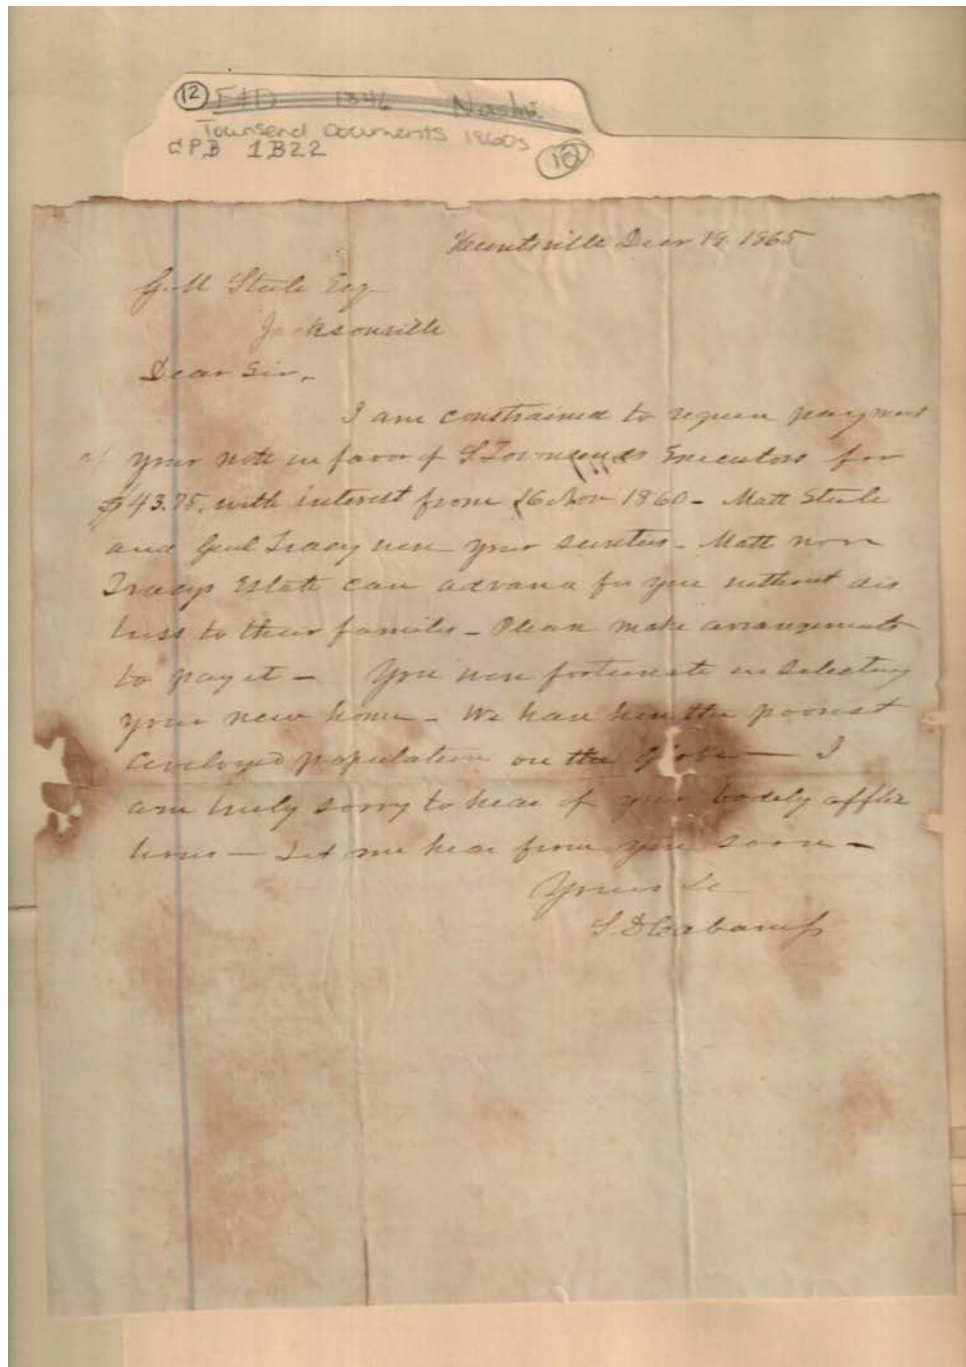 12 F&D 1846 Nashv.
Townsend Documents 1860s
CPB 1B22
12
Huntsville Decr 19. 1865
G. M Steele Esq
Jacksonville
Dear Sir,
I am constrained to require payment
of your note in favor of S Townsends Executors for
$43.75, with interest from 16 Nov 1860 - Matt Steele
and Genl Tracy were your sureties - Matt nor
Tracys Estate can advance for you without dis
tress to their families - Please make arrangements
to pay it - You were fortunate in selecting
your new home - We have here the poorest
population on the Globe - I
am truly sorry to hear of your bodily afflic
tions - Let me hear from you soon -
Yours &c
S D Cabaniss